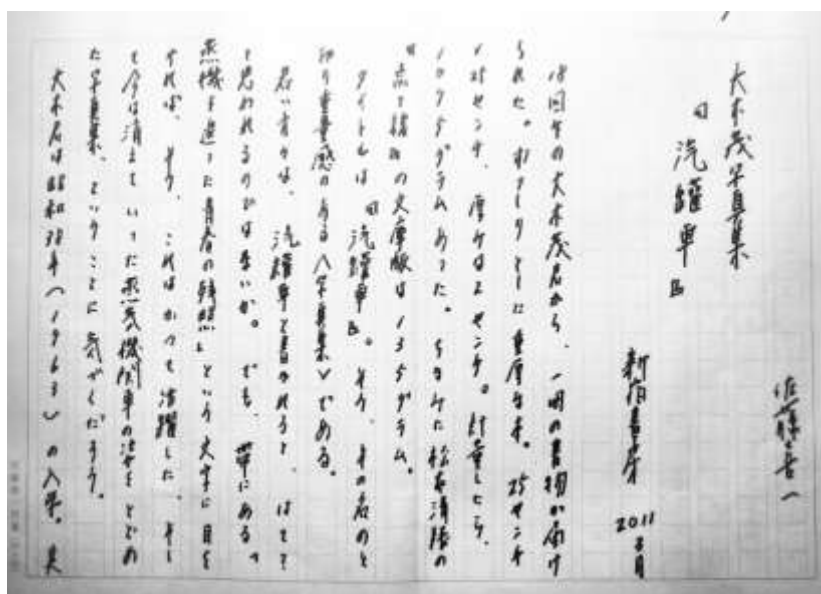 佐藤喜一
大木茂写真集
『汽罐車』
新宿書房 2011 月
18回生の大木茂君から、一冊の書物が届け
られた。 重厚な本。25センチ
25センチ、厚さは2センチ。計量したら、
1075グラムあった。ちなみに松本清張の
『点と線』の文庫版は135グラム。
タイトルは『汽罐車』。そう、その名のと
おり重量感のある〈写真集〉である。
若い方々は、汽罐車と書かれると、
と思われるのではないか。でも、帯にある「
蒸機を追った青春の残照」という文字に目を
やれば、そう、これはかつて活躍した、そし
て今は消えていった蒸気機関車の姿をとどめ
た写真集、ということに気がくだろう。
大木君は昭和38年(1963)の入学。実